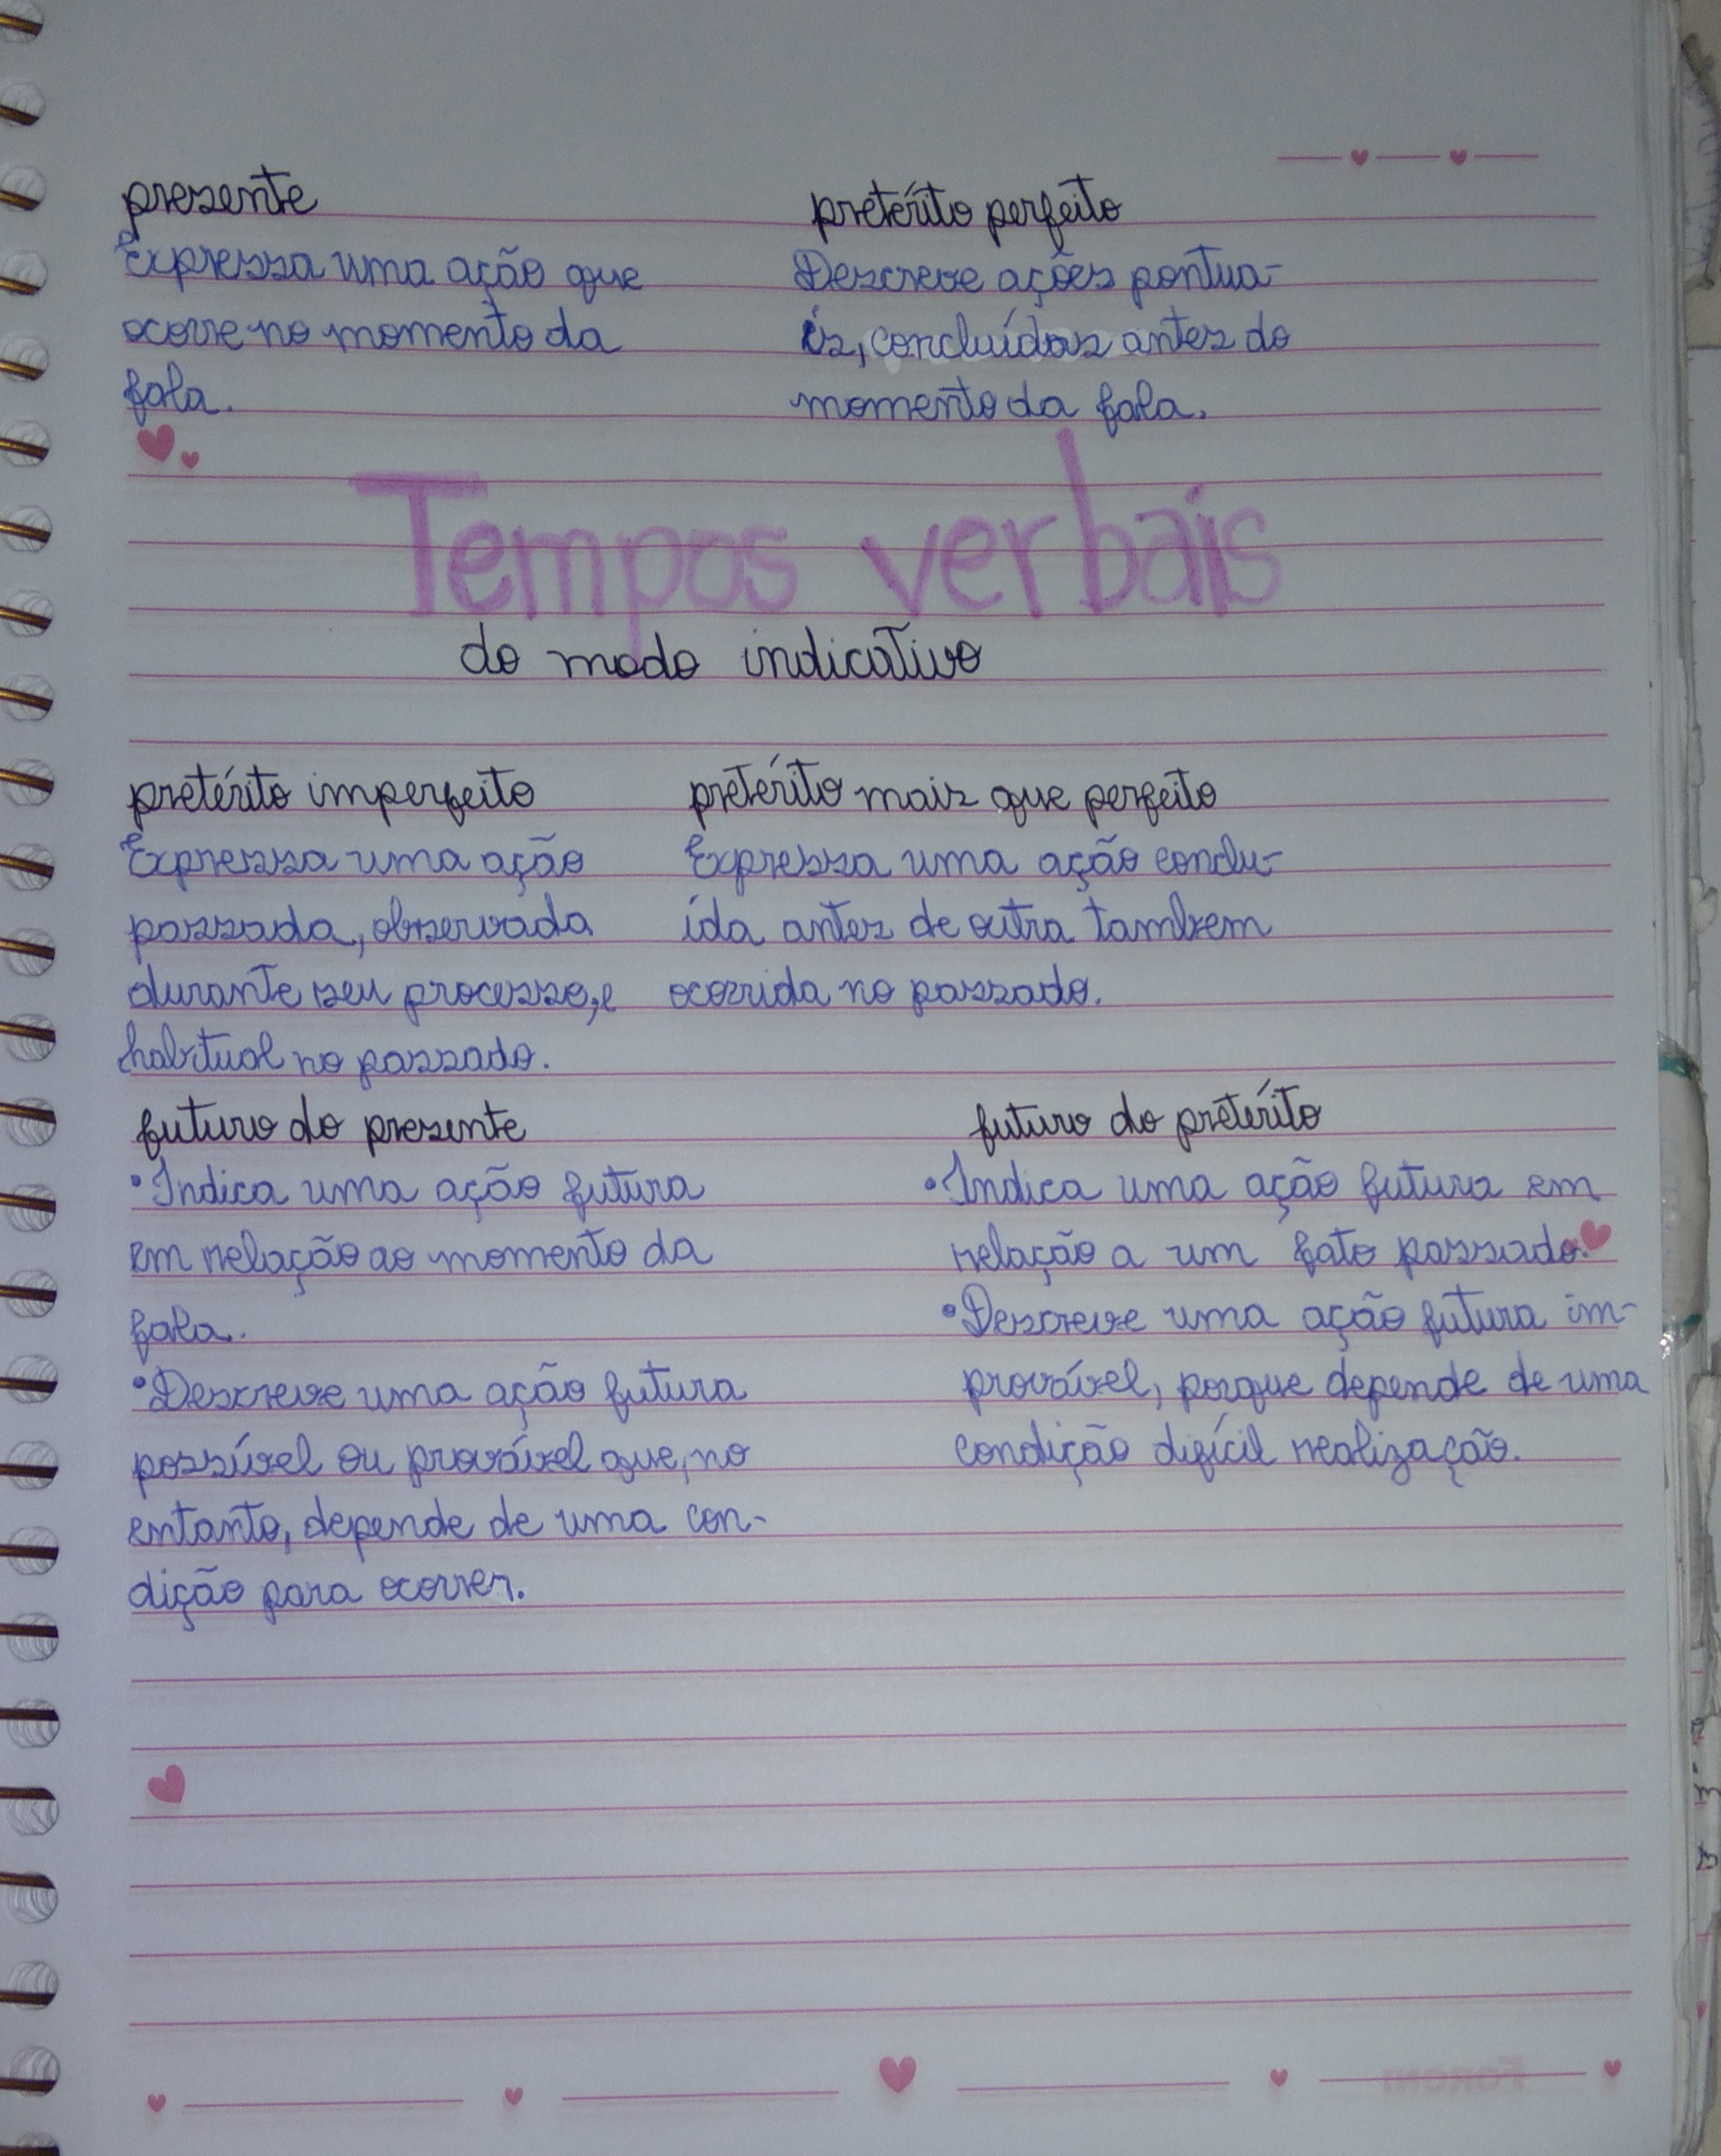 presente
Expressa uma ação que
ocorre no momento da
fala.
pretérito perfeito
Descreve ações pontua-
is, concluídas antes do
momento da fala.
Tempos verbais
do modo indicativo
pretérito imperfeito
Expressa uma ação
passada, observada
durante seu processo, e
habitual no passado.
pretérito mais que perfeito
Expressa uma ação conclu-
ída antes de outra tambem
ocorrida no passado.
futuro do presente
• Indica uma ação futura
em relação ao momento da
fala.
• Descreve uma ação futura
possível ou provável que, no
entanto, depende de uma con-
dição para ocorrer.
futuro do pretérito
• Indica uma ação futura em
relação a um fato passado.
• Descreve uma ação futura im-
provável, porque depende de uma
condição difícil realização.